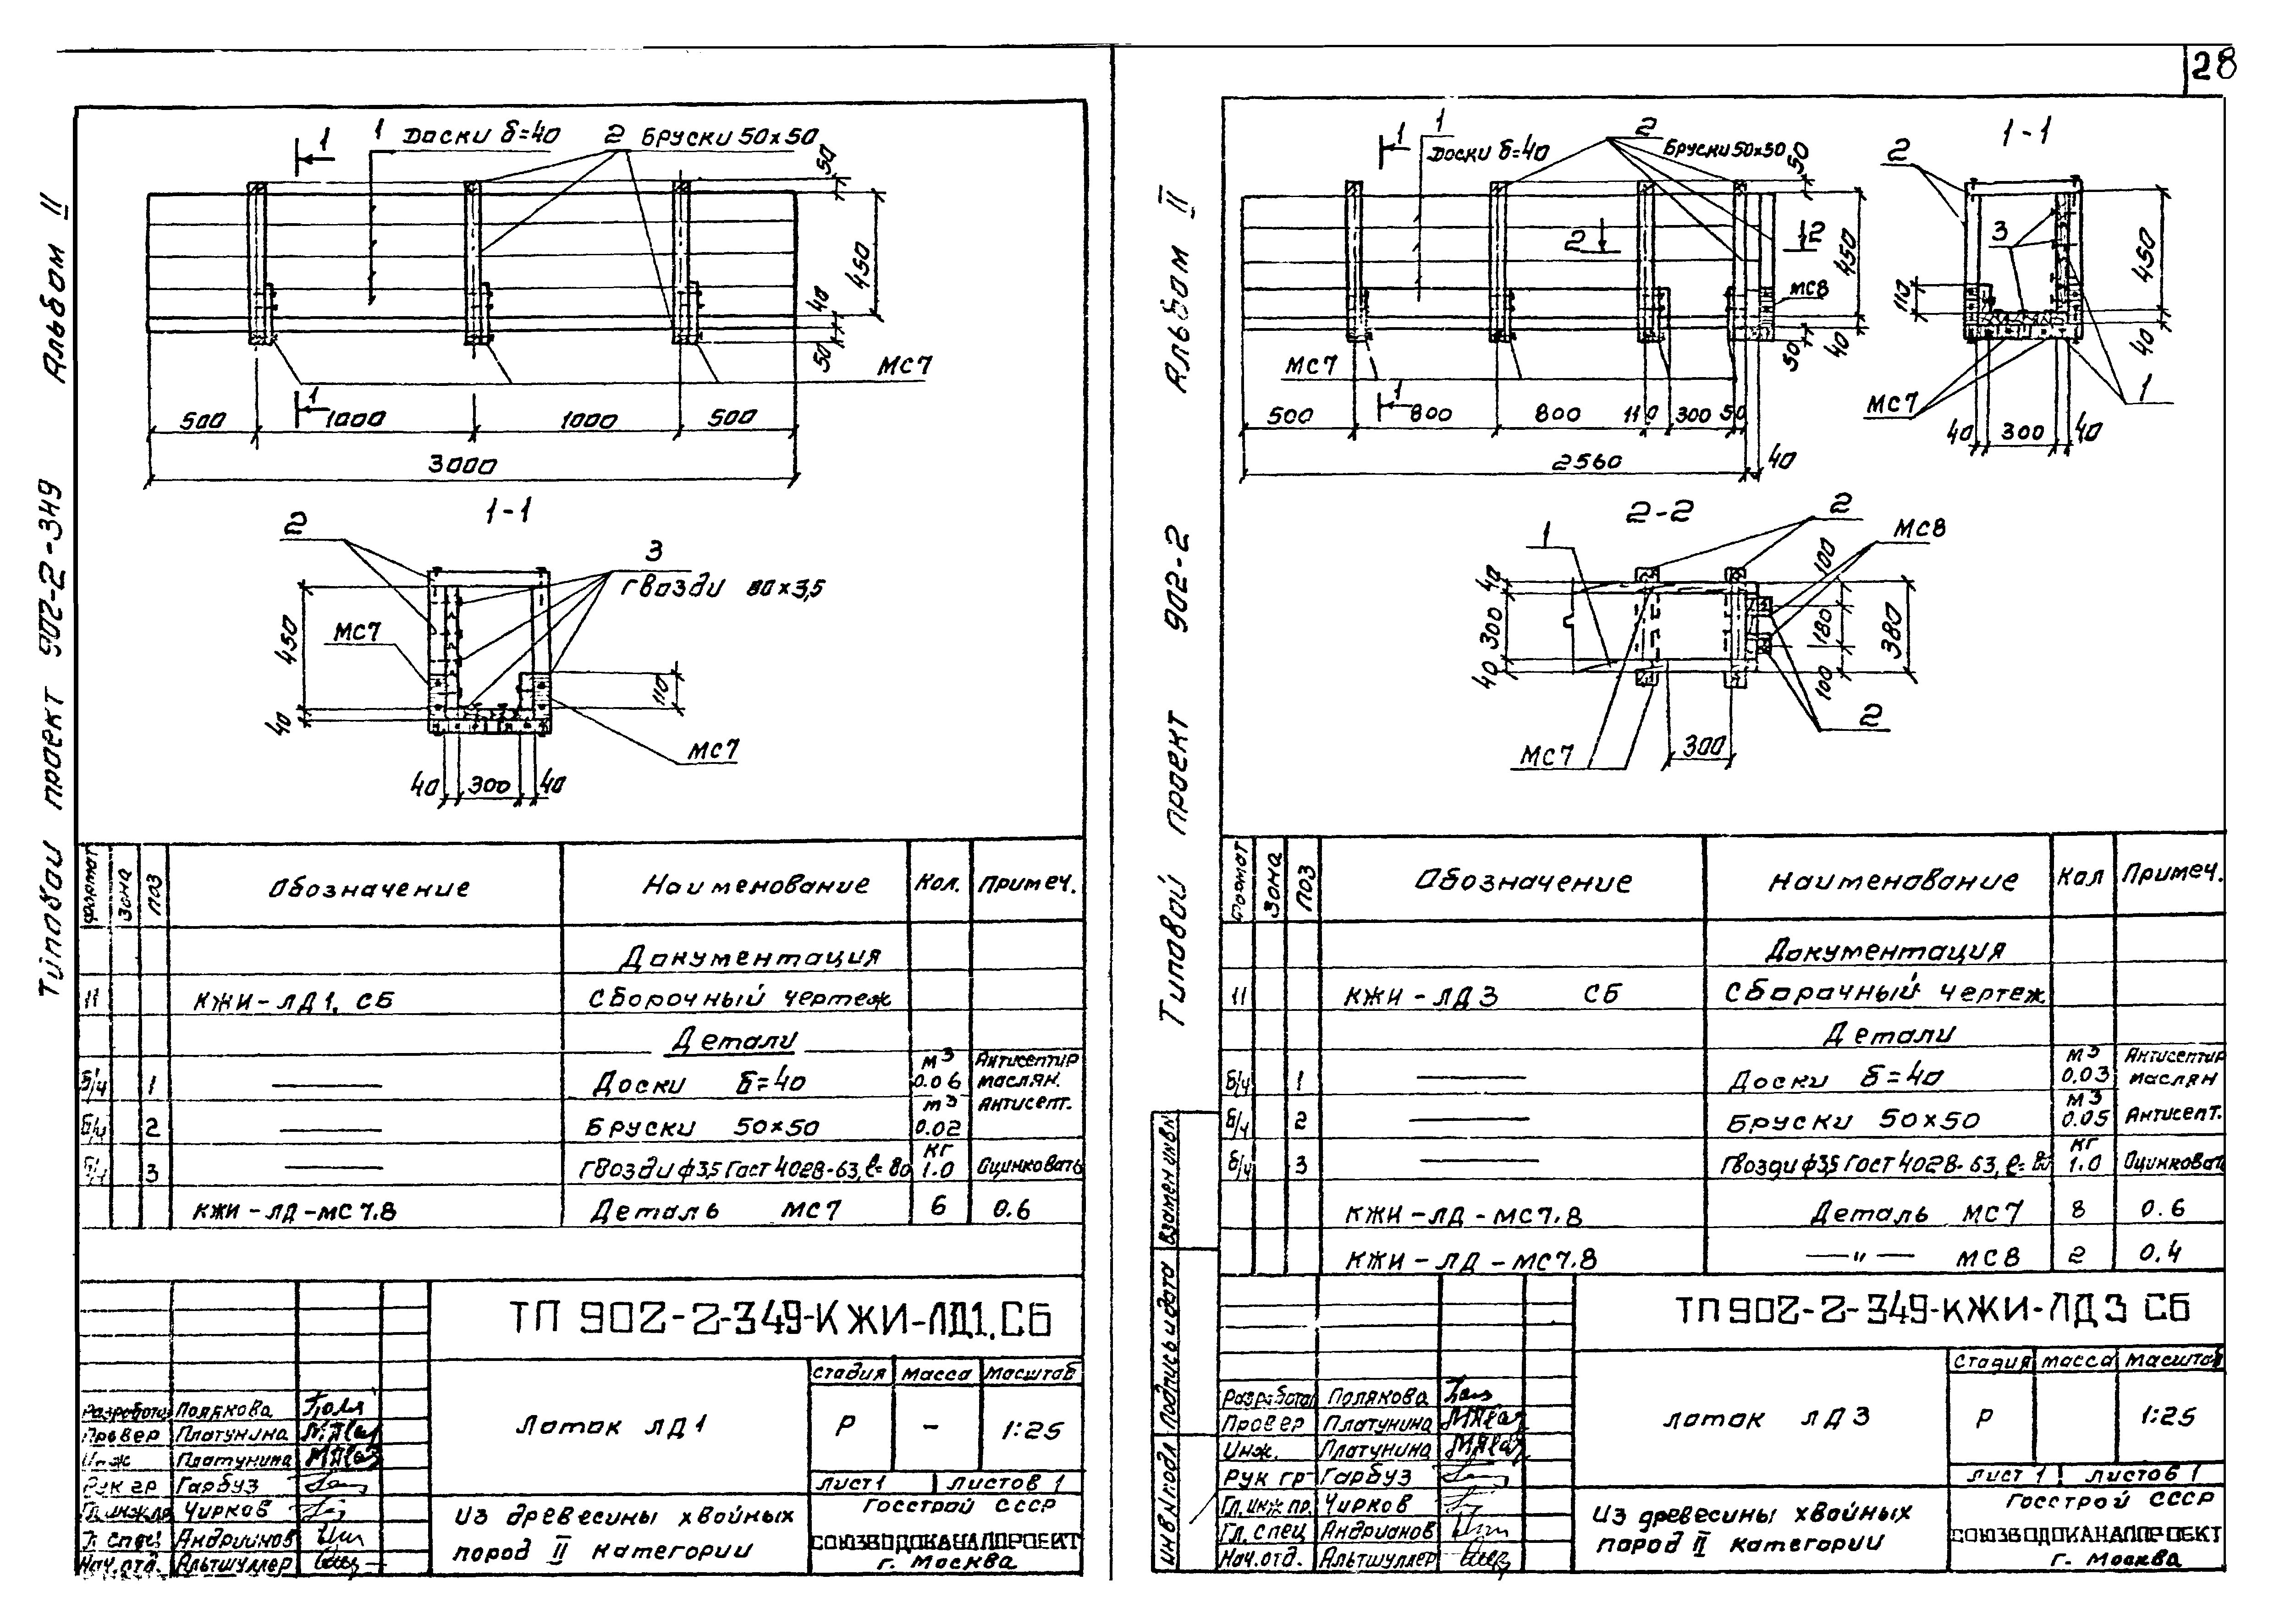 28
Типовой проект 902-2-349 Альбом II
1
1 Доски δ=40
2 Бруски 50×50
50
450
40
50
МС7
1
500 1000 1000 500
3000
1-1
2
3
гвозди 80×3,5
МС7
450
40
110
МС7
40 300 40
Формат Зона Поз Обозначение Наименование Кол. Примеч.
Документация
11 КЖИ-ЛД1. СБ Сборочный чертеж
Детали
Б/ч 1 Доски δ=40 м3 0.06 Антисептир маслян.
Б/ч 2 Бруски 50×50 м3 0.02 Антисепт.
Б/ч 3 Гвозди ф3,5 Гост 4028-63, ℓ=80 кг 1.0 Оцинковать
КЖИ-ЛД-МС7.8 Деталь МС7 6 0.6
ТП 902-2-349-КЖИ-ЛД1.СБ
Лоток ЛД1
Стадия Масса Масштаб
Р – 1:25
Лист 1 Листов 1
Разработал Полякова
Провер Платунина
Инж Платунина
Рук гр Гарбуз
Гл.инж.пр Чирков
Гл. спец Андрианов
Нач.отд. Альтшуллер
Из древесины хвойных
пород II категории
Госстрой СССР
СОЮЗВОДОКАНАЛПРОЕКТ
г. Москва
Типовой проект 902-2 Альбом II
1
1
Доски δ=40
2
Бруски 50×50
50
2 2
450
МС8
50
40
МС7
1
500 800 800 110 300 50
2560 40
1-1
2
3
450
110
40
МС7
1
40 300 40
2-2
1
2
МС8
40
300
40
100
180
100
380
2
МС7
300
Формат Зона Поз Обозначение Наименование Кол Примеч.
Документация
11 КЖИ-ЛД3 СБ Сборочный чертеж
Детали
Б/ч 1 Доски δ=40 м3 0.03 Антисептир маслян
Б/ч 2 Бруски 50×50 м3 0.05 Антисепт.
Б/ч 3 Гвозди ф3,5 Гост 4028-63, ℓ=80 кг 1.0 Оцинковать
КЖИ-ЛД-МС7.8 Деталь МС7 8 0.6
КЖИ-ЛД-МС7.8 —"— МС8 2 0.4
Взамен инв.N
Подпись и дата
Инв.N подл.
ТП 902-2-349-КЖИ-ЛД3 СБ
Лоток ЛД3
Стадия Масса Масштаб
Р 1:25
Лист 1 Листов 1
Разработал Полякова
Провер Платунина
Инж. Платунина
Рук гр Гарбуз
Гл.инж.пр. Чирков
Гл. спец Андрианов
Нач.отд. Альтшуллер
Из древесины хвойных
пород II категории
Госстрой СССР
СОЮЗВОДОКАНАЛПРОЕКТ
г. Москва